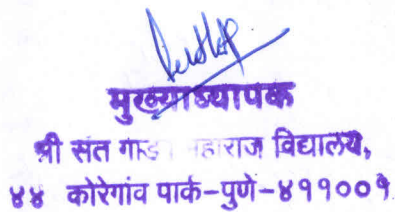 मुख्याध्यापक
श्री संत गाडगे महाराज विद्यालय,
४४ कोरेगांव पार्क-पुणे-४११००१